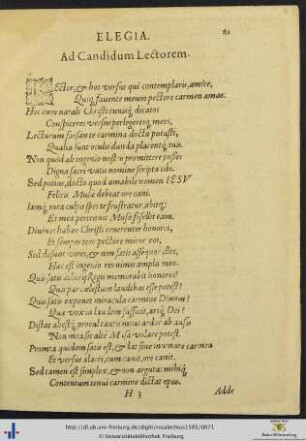 ELEGIA.
61
Ad Candidum Lectorem.
LEctor, & hos versus qui contemplaris, amice,
Quiq; fauente meum pectore carmen amas.
Hos cum natale Christi cuniq; dicatos
Conspiceres versus perlegeresq; meos,
Lecturum forsan te carmina docta putasti,
Qualia sunt oculis dan da placentq; tuis.
Non quod ab ingenio nostro promittere posses
Digna sacri vatis nomine scripta tibi.
Sed potius, docto quod amabile nomen IESV
Felicis Musae debeat ore cani.
Iamq; mea culpa spes te frustratur, abitq;
Et mea peccauit Musa fefellit eam.
Diuinos habeo Christi reuerenter honores,
Et semper toto pectore miror eos,
Sed desunt vires, & non satis assequor artes,
Haec est ingenio res nimis ampla meo.
Quis satis Regis memorabit honores?
Quis par coelestum laudibus esse potest?
Quis satis exponet miracula carmine Diuûm?
Qua vox in laudem sufficit, arsq; Dei?
Distat abestq; procul tantus meus ardor ab ausu
Non mea sic alte Musa volare potest.
Promta quidem satis est, & laetfine carmen
Et versus alacri, cum canit, ore canit.
Sed tamen est simplex, & non arguta: mihiq;
Contentum tenui carmine dictat opus.
H 3
Adde
http://dl.ub.uni-freiburg.de/diglit/rosalechius1591/0071
© Universitätsbibliothek Freiburg
Baden-Württemberg